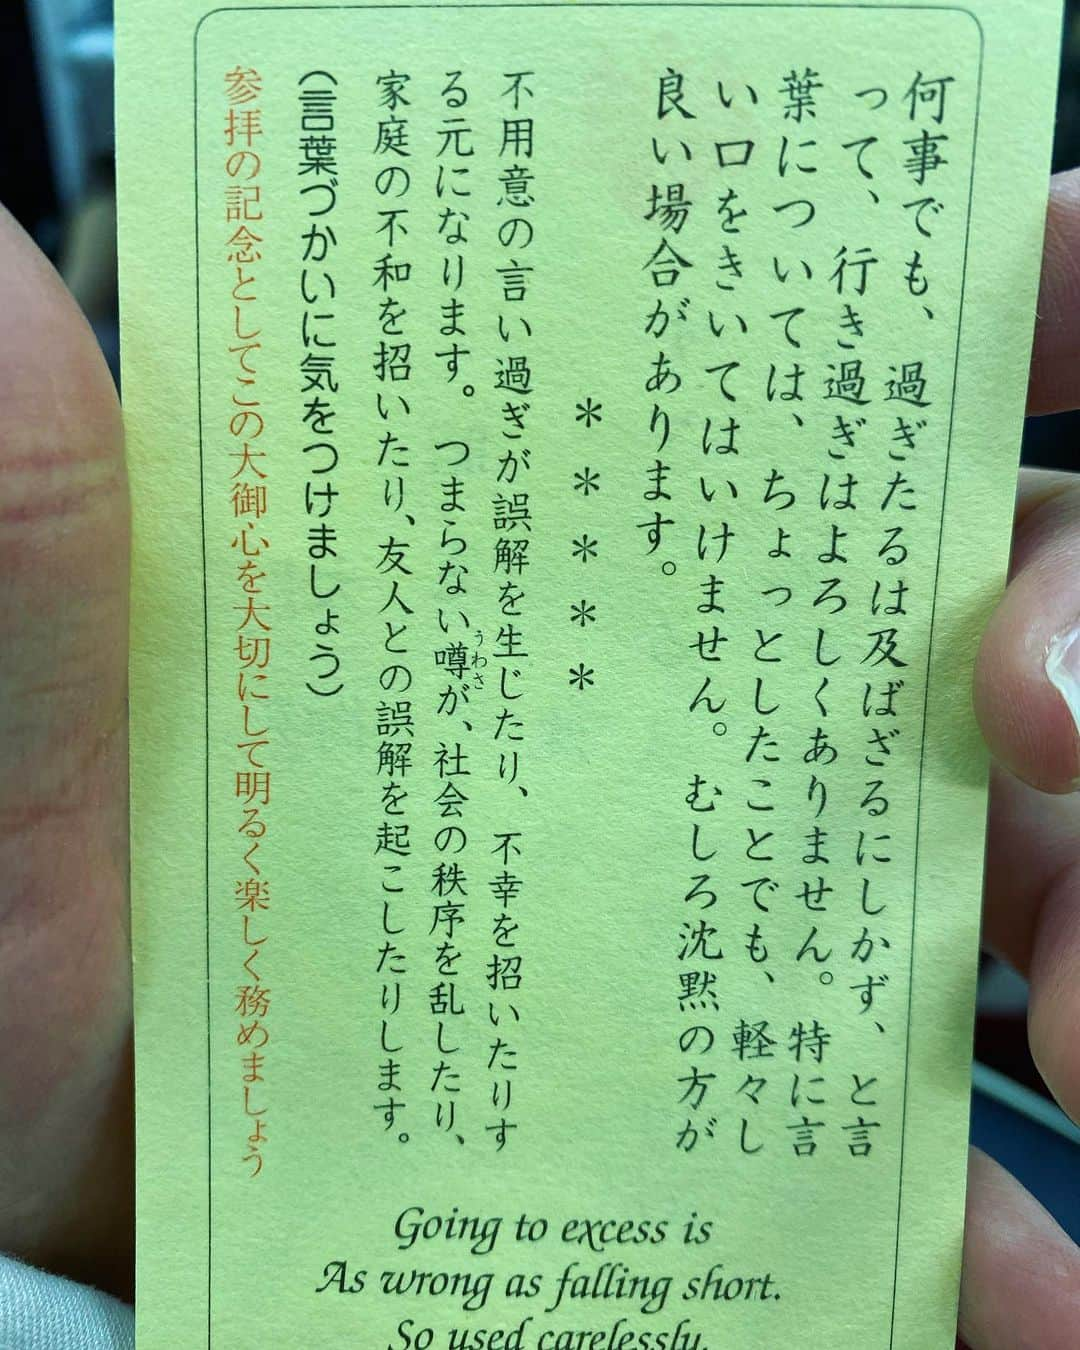 何事でも、過ぎたるは及ばざるにしかず、と言
って、行き過ぎはよろしくありません。特に言
葉については、ちょっとしたことでも、軽々し
い口をきいてはいけません。むしろ沈黙の方が
良い場合があります。
＊＊＊＊＊
不用意の言い過ぎが誤解を生じたり、不幸を招いたりす
る元になります。つまらない噂が、社会の秩序を乱したり、
うわさ
家庭の不和を招いたり、友人との誤解を起こしたりします。
（言葉づかいに気をつけましょう）
参拝の記念としてこの大御心を大切にして明るく楽しく務めましょう
Going to excess is
As wrong as falling short.
So used carelessly,